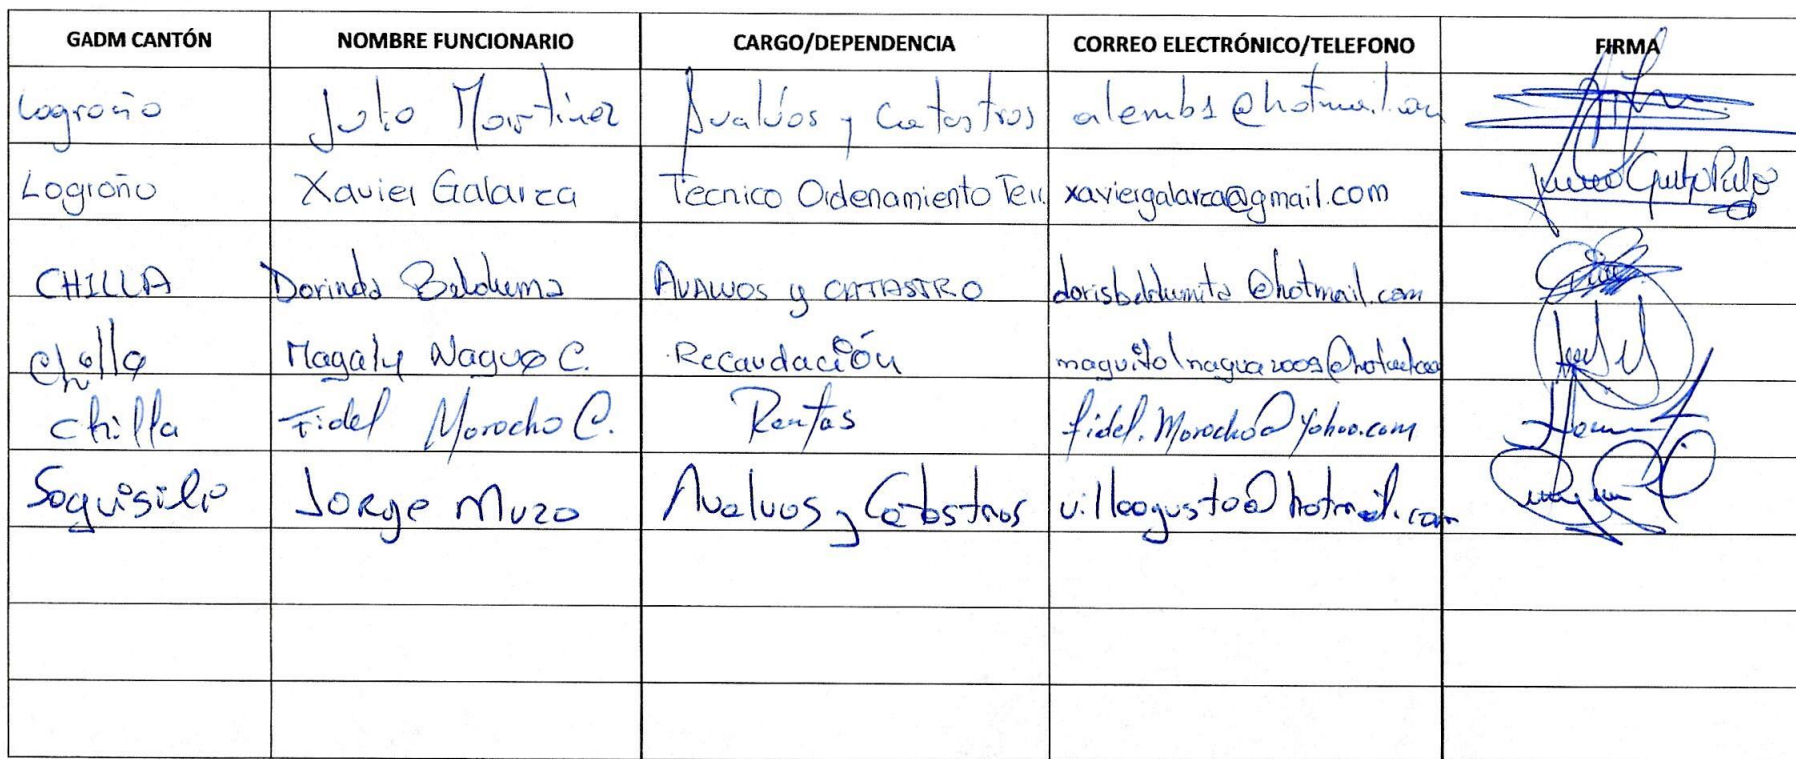 GADM CANTÓN NOMBRE FUNCIONARIO CARGO/DEPENDENCIA CORREO ELECTRÓNICO/TELEFONO FIRMA
Logroño Julio Martinez Avalúos y Catastros alembs@hotmail.com
Logroño Xavier Galarza Tecnico Ordenamiento Terr. xaviergalarza@gmail.com
CHILLA Dorinda Belduma AVALUOS y CATASTRO dorisbeldumita@hotmail.com
Chilla Magaly Nagua C. Recaudación
Chilla Fidel Morocho C. Rentas fidel.Morocho@yahoo.com
Saquisilí Jorge Muzo Avaluos y Catastros villaagusto@hotmail.com